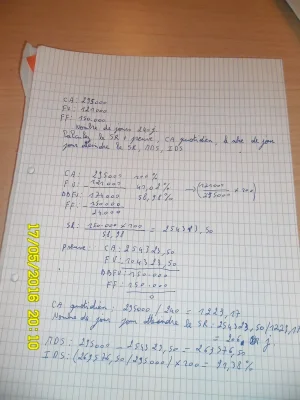 CA : 295000
FV : 121000
FF : 150.000
Nombre de jours 240 j
Calculez le SR + preuve, CA quotidien, le nbre de jour
pour atteindre le SR, MDS, IDS
CA : 295000 100 %
FV : 121000 41,02 % → (121000 / 295000 x 100)
174000 58,98 %
FF : 150000
24000
SR : 150.000 x 100 / 58,98 = 254323,50
preuve : CA : 254323,50
FV : 104323,50
150.000
FF : 150.000
0
CA quotidien : 295000 / 240 = 1229,17
Nombre de jour pour atteindre le SR : 254323,50 / 1229,17
= 206 j
MDS : 295000 - 254323,50 =
IDS : / 295000) x 100 =
17/05/2016 20:10